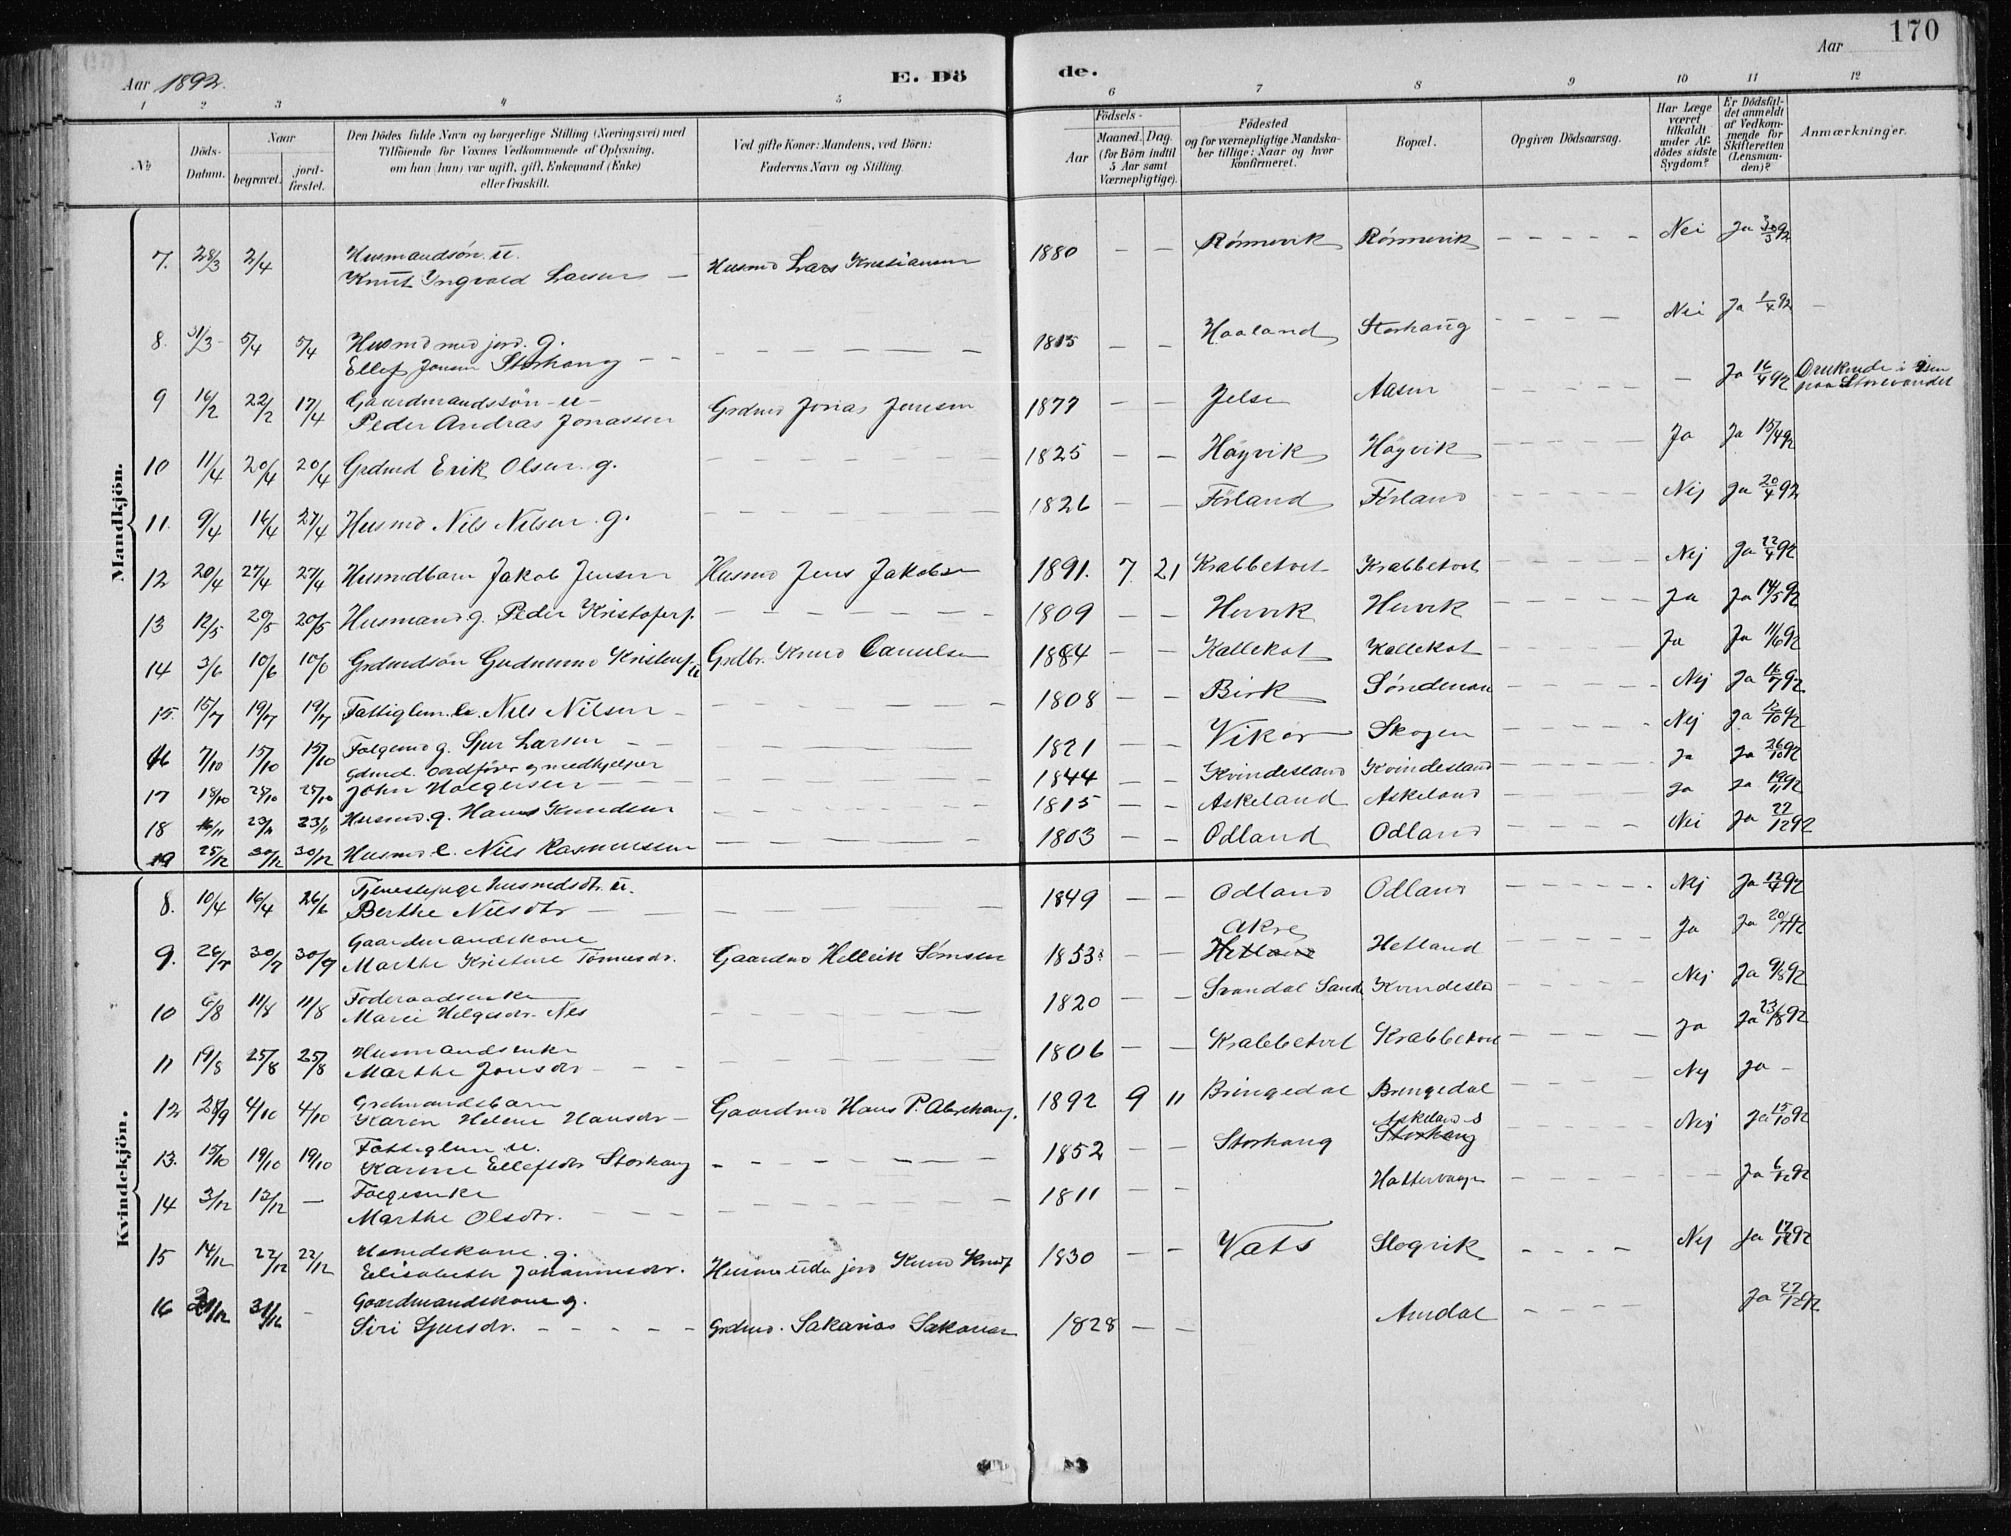 170
Aar 1892.
E. Dö
de.
Aar
1 2 3 4 5 6 7 8 9 10 11 12
No
Döds-Datum.
Naar
begravet.
jord-fæstet.
Den Dödes fulde Navn og borgerlige Stilling (Næringsvei) med
Tilföiende for Voxnes Vedkommende af Oplysning,
om han (hun) var ugift, gift, Enkemand (Enke)
eller fraskilt.
Ved gifte Koner: Mandens, ved Börn:
Faderens Navn og Stilling.
Födsels-
Aar
Maaned. Dag.
(for Börn indtil
5 Aar samt
Værnepligtige).
Födested
og for værnepligtige Mandska-
ber tillige: Naar og hvor
konfirmeret.
Bopæl.
Opgiven Dödsaarsag.
Har Læge
været
tilkaldt
under Af-
dödes sidste
Sygdom?
Er Dödsfal-
det anmeldt
af Vedkom-
mende for
Skifteretten
(Lensman-
den)?
Anmærkninger.
Mandkjön.
7. 28/3 2/4 Husmandsön u. Knut Yngvald Larsen — Husmd Lars Kristiansen 1880 — — Rönnevik Rönnevik - - - - - Nei Ja 30/3 92
8. 31/3 5/4 5/4 Husmd med jord. g. Ellef Jonsen Storhaug — — 1815 — — Haaland Storhaug - - - - Nei Ja 1/4 92
9 16/2 22/2 17/4 Gaardmandssön u Peder Andras Jonassen Grdmd Jonas Jensen 1877 — — Jelse Aasen - - - - — Ja 16/4 92 Druknede i isen paa Storevandet
10 11/4 20/4 20/4 Grdmd Erik Olsen. g. 1825 — — Höyvik Höyvik - - - - Ja Ja 15/4 92
11. 9/4 16/4 27/4 Husmd Nils Nilsen g. 1826 — — Förland Förland - - - - Nej Ja 20/4 92
12 20/4 27/4 27/4 Husmdbarn Jakob Jensen Husmd Jens Jakobsen 1891. 7 21 Krabbetveit Krabbetveit - - - - Nej Ja 22/4 92
13 12/5 20/5 20/5 Husmand g. Peder Kristofers. 1809 — — Hervik Hervik - - - - Ja Ja 14/5 92
14 3/6 10/6 10/6 Grdmdsön Gudmund 1884 — — Kallekot Kallekot - - - - Ja Ja 11/6 92
15. 15/7 19/7 19/7 Fattiglem. e. Nils Nilsen — 1808 — — Birk - - - - Nej Ja 16/7 92
16 7/10 15/10 15/10 Folgemd g. Sjur Larsen — — 1821 — — Vikor Skogen - - - - Nej Ja 12/10 92
17 18/10 25/10 25/10 Gdmd. Ordförer og medhjelper John Holgersen — 1844 — — Kvindesland Kvindesland - - - - Ja Ja 26/10 92
18 16/11 23/11 23/11 Husmd. g. Hans Knudsen 1815 — — Askeland Askeland - - - - Ja Ja 19/11 92
19 25/12 30/12 30/12 Husmd e. Nils Rasmussen 1803 — Odland Odland - - - - Nei Ja 27/12 92
Kvindekjön.
8. 10/4 16/4 26/6 Tjenestepige husmdsdtr u. Berthe Nilsdtr — 1849 — — Odland Odland - - - - Nej Ja 12/4 92
9. 26/7 30/7 30/7 Gaardmandskone Marthe Kristine Tönnesdr. Gaardmd Helleik Sömsen 1853 — — Akre Hetland Hetland - - - - Ja Ja 20/7 92
10 6/8 11/8 11/8 Föderaadsenke Marie Helgesdr. Nes 1820 — — Svandal Sande - - - - Nej Ja 9/8 92
11 19/8 25/8 25/8 Husmandsenke Marthe Jonsdtr — — 1806 — — Krabbetveit Krabbetveit - - - - Ja Ja 23/8 92
12 28/9 4/10 4/10 Grdmandsbarn Karen Helene Hansdtr — Gaardmd Hans P. 1892 9 11 Bringedal Bringedal - - - - Nej Ja —
13. 15/10 19/10 19/10 Fattiglem u. Karine Ellefsdtr Storhaug 1852 — — Storhaug Askeland Storhaug - - - - Nej Ja 15/10 92
14 3/12 12/12 — Folgeenke Marthe Olsdtr. 1811 — — Hattervaag - - - - — Ja 6/12 92
15 14/12 22/12 22/12 Husmdskone. g. Elisabeth Johannesdr. Husmd uden jord Knud 1830 — — Vats Slogvik - - - - Nej Ja 17/12 92
16 21/12 31/12 — Gaardmandskone g. Siri Sjursdr. — — — — — Grdmd. Sakarias Sakarias 1828 — — Amdal - - - - Ja 27/12 92